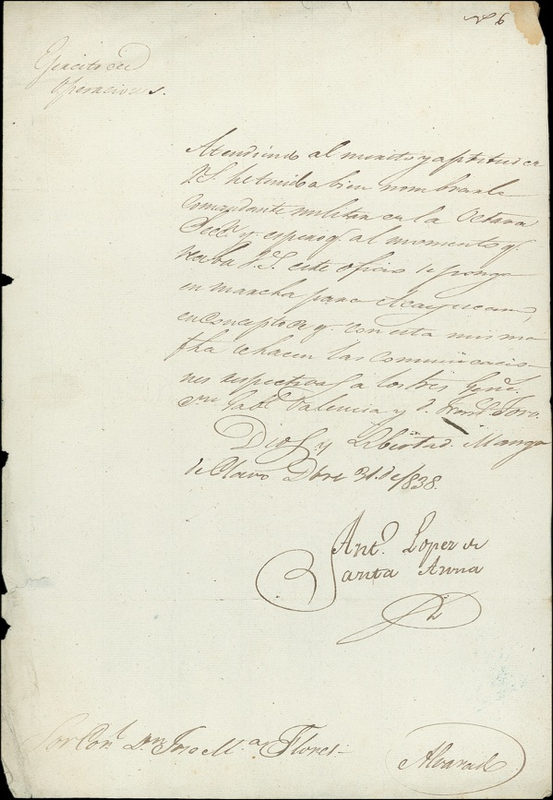 Nº 6
Ejercito de
Operaciones.
Atendiendo al merito y aptitud de
V.S. he tenido a bien nombrarle
Comandante militar en la Octava
y espero q. al momento q.
reciba V.S. este oficio se ponga
en marcha para Acayucan,
en concepto de q. con esta misma
fha se hacen las comunicacio-
nes respectivas a los Sres Gens.
Gabl. Valencia y D. Toro.
Dios y Libertad. Manga
de Clavo Dbre 31. de 1838.
Antº. Lopez de
Santa Anna
Sor Conl. Dn Jose Ma. Flores-
Alvarado